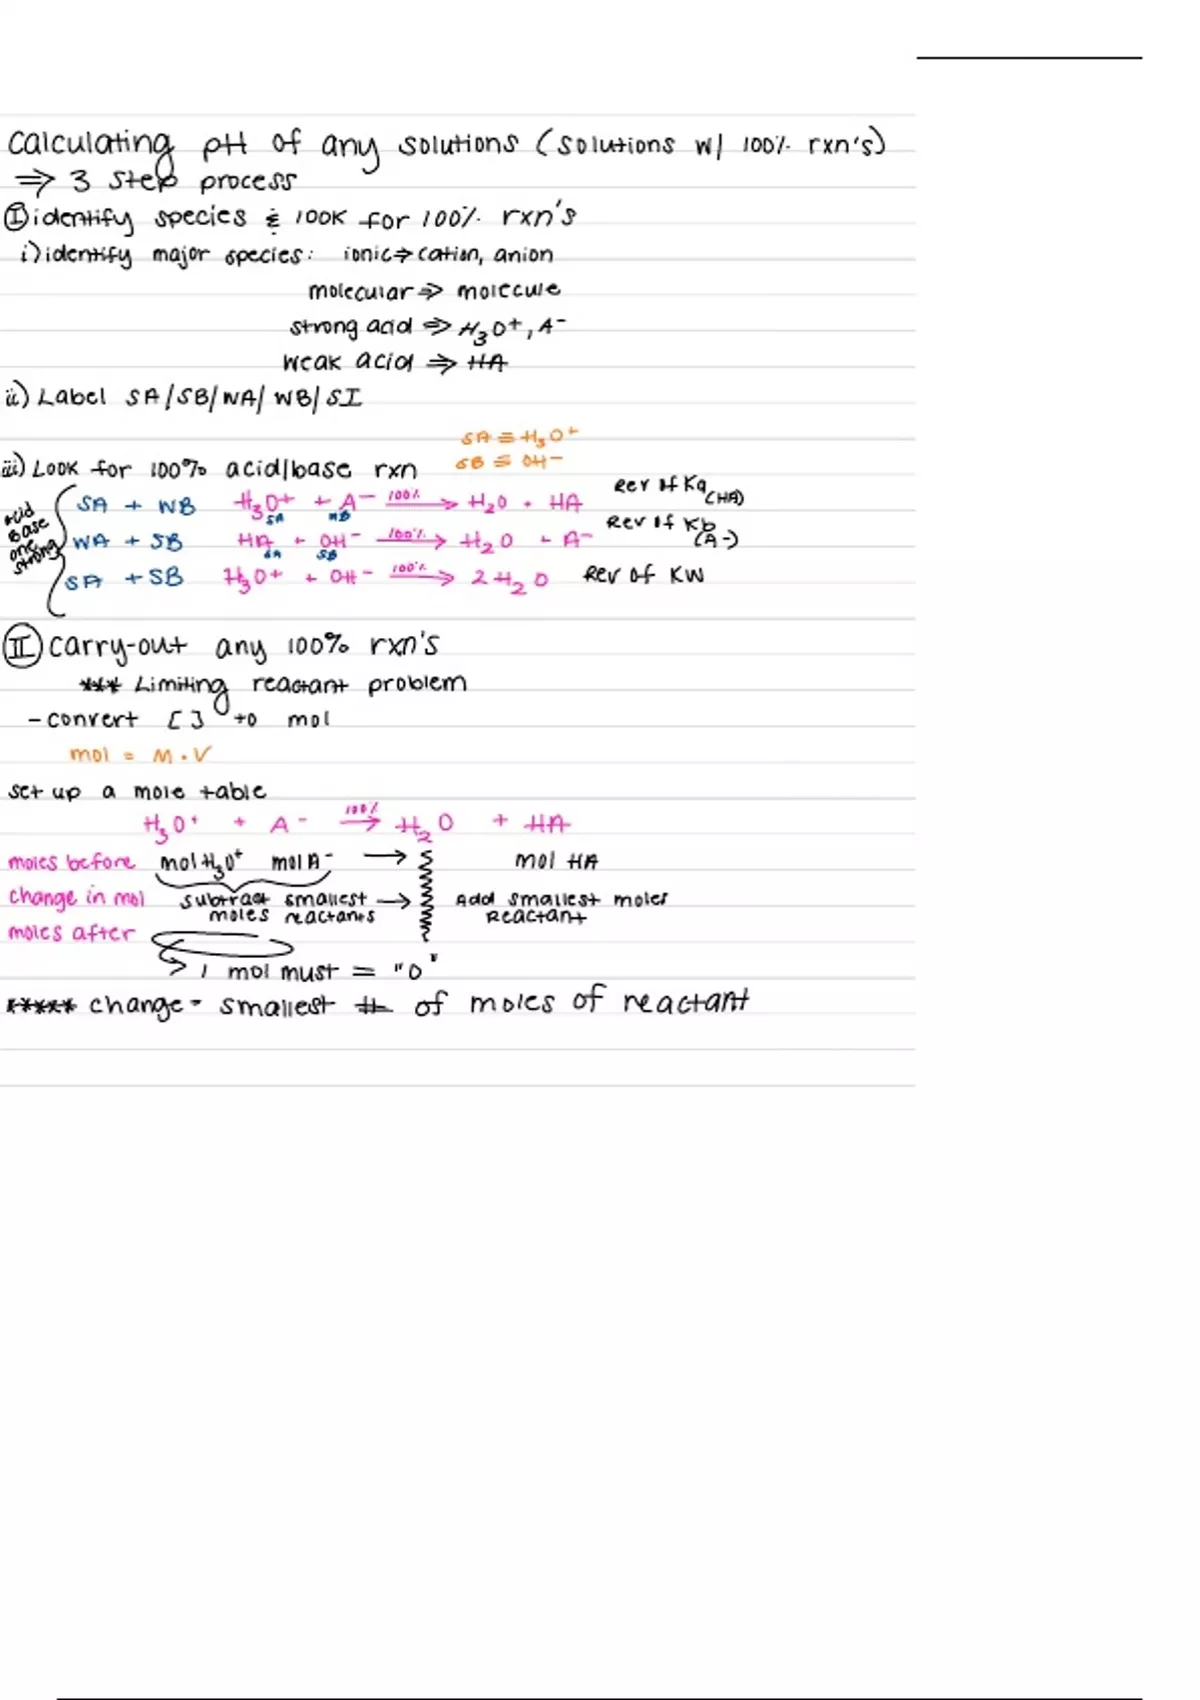 Calculating pH of any solutions (solutions w/ 100% rxn's)
⇒ 3 step process
Ⓘ identify species & look for 100% rxn's
i) identify major species: ionic ⇒ cation, anion
molecular ⇒ molecule
strong acid ⇒ H₃O⁺, A⁻
weak acid ⇒ HA
ii) Label SA/SB/WA/WB/SI
SA ≡ H₃O⁺
SB ≡ OH⁻
iii) Look for 100% acid/base rxn
acid Base one strong
SA + WB H₃O⁺ + A⁻ 100%→ H₂O + HA Rev of Ka (HA)
SA WB
WA + SB HA + OH⁻ 100%→ H₂O + A⁻ Rev of Kb (A⁻)
SA SB
SA + SB H₃O⁺ + OH⁻ 100%→ 2H₂O Rev of Kw
II carry-out any 100% rxn's
*** Limiting reactant problem
- convert [ ] to mol
mol = M • V
set up a mole table
H₃O⁺ + A⁻ 100%→ H₂O + HA
moles before mol H₃O⁺ mol A⁻ → mol HA
change in mol subtract smallest moles reactants → Add smallest moles Reactant
moles after
↳ 1 mol must = "0"
***** change = smallest # of moles of reactant